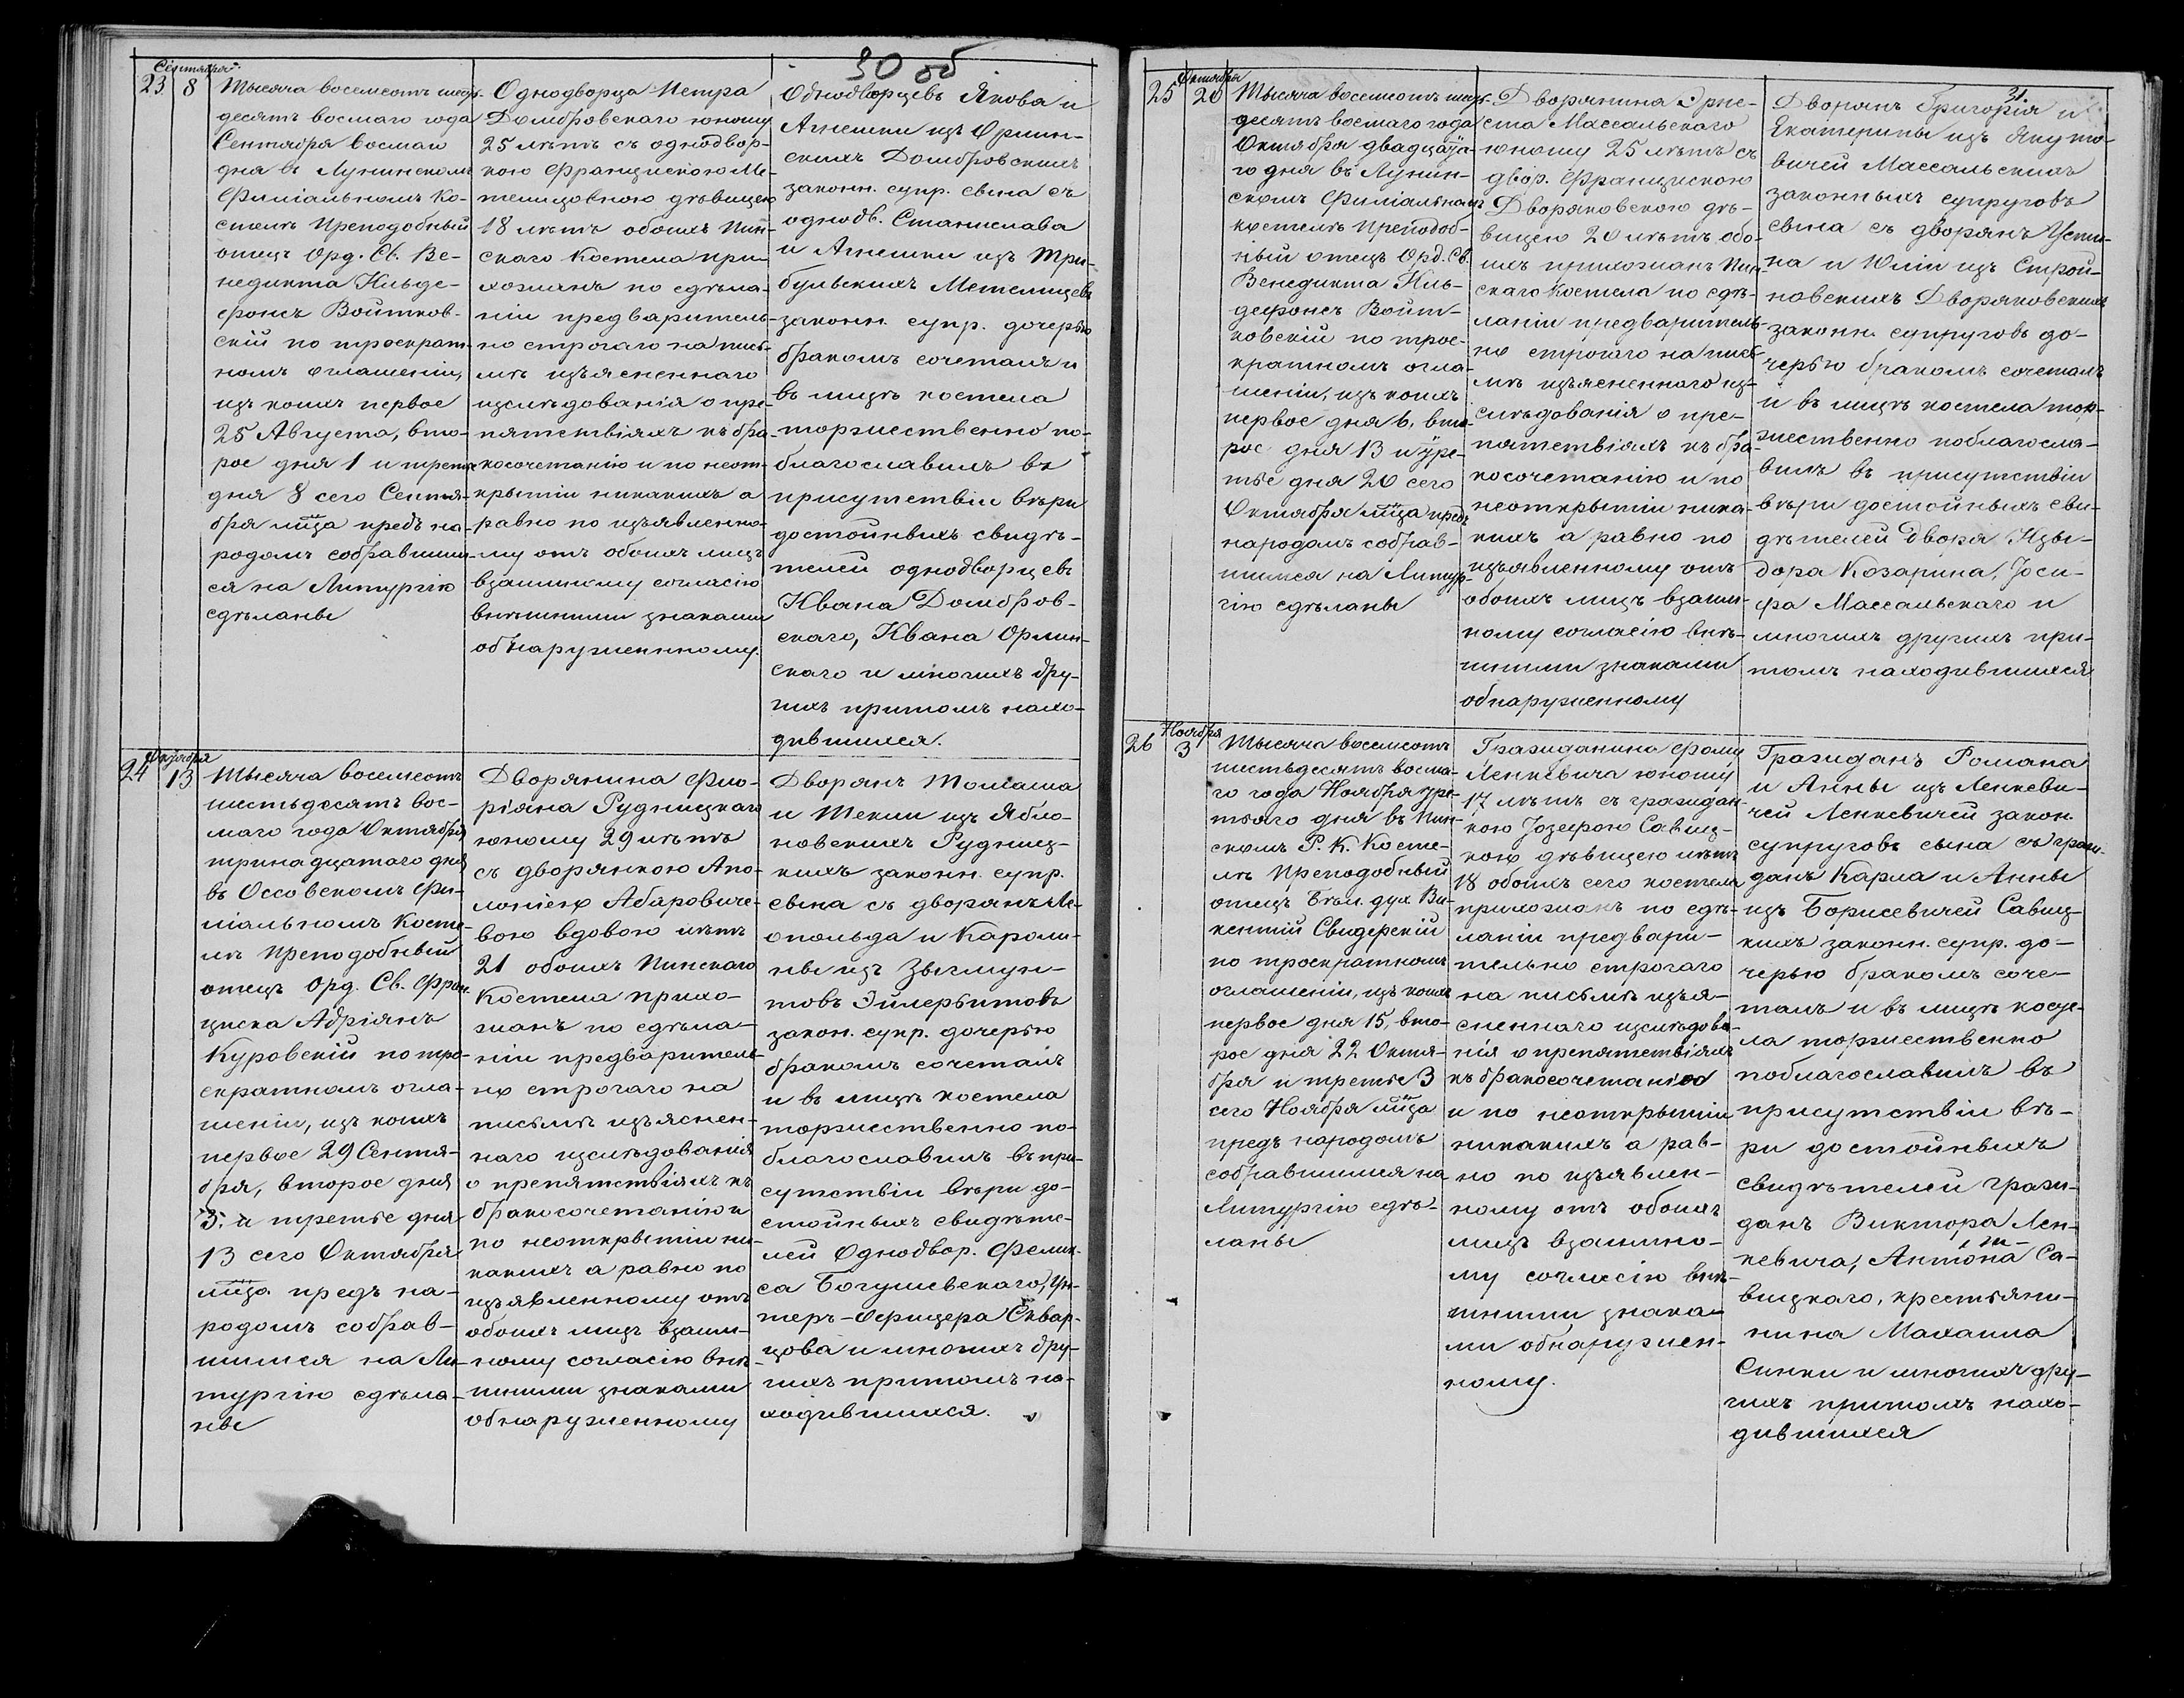 30 об
Сентября
23
8
Тысяча восемсотъ шесть-
десятъ восмаго года
Сентября восмаго
дня въ Лунинскомъ
Филіальномъ Ко-
стелѣ Преподобный
отецъ Орд. Св. Бе-
недикта Ильде-
фонсъ Войтков-
скій по троекрат-
номъ оглашеніи,
изъ коихъ первое
25 Августа, вто-
рое дня 1 и третье
дня 8 сего Сентя-
бря м̃ца предъ на-
родомъ собравшим-
ся на Литургію
сдѣланы
Однодворца Петра
Домбровскаго юношу
25 лѣтъ съ однодвор-
кою Францискою Ме-
телицовною дѣвицею
18 лѣтъ обоихъ Пин-
скаго Костела при-
хожанъ по сдѣла-
ніи предваритель-
но строгаго на пись-
мѣ изъясненнаго
изслѣдованія о пре-
пятствіяхъ къ бра-
косочетанію и по неот-
крытіи никакихъ а
равно по изъявленно-
му отъ обоихъ лицъ
взаимному согласію
внѣшними знаками
обнаруженному.
Однодворцевъ Якова и
Агнешки изъ Орлин-
скихъ Домбровскихъ
законн. супр. сына съ
однодв. Станислава
и Агнешки изъ Три-
бульскихъ Метелицевъ
законн. супр. дочерью
бракомъ сочеталъ и
въ лицѣ костела
торжественно по-
благославилъ въ
присутствіи вѣри
достойныхъ свидѣ-
телей однодворцевъ
Ивана Домбров-
скаго, Ивана Орлин-
скаго и многихъ дру-
гихъ притомъ нахо-
дившихся.
Октября
24
13
Тысяча восемсотъ
шестьдесятъ вос-
маго года Октября
тринадцатаго дня
въ Оссовскомъ Фи-
ліальномъ Косте-
лѣ Преподобный
отецъ Орд. Св. Фран-
циска Адріянъ
Куровскій по тро-
екратномъ огла-
шеніи, изъ коихъ
первое 29 Сентя-
бря, второе дня
и третье дня
13 сего Октября
м̃ца предъ на-
родомъ собрав-
шимся на Ли-
тургію сдѣла-
ны
Дворянина Фло-
ріяна Рудницкаго
юношу 29 лѣтъ
съ дворянкою Апо-
лоніею Абаровиче-
вою вдовою лѣтъ
21 обоихъ Пинскаго
Костела прихо-
жанъ по сдѣла-
ніи предваритель-
но строгаго на
письмѣ изъяснен-
наго изслѣдованія
о препятствіяхъ къ
бракосочетанію и
по неоткрытіи ни-
какихъ а равно по
изъявленному отъ
обоихъ лицъ взаим-
ному согласію внѣ-
шними знаками
обнаруженному
Дворянъ Томаша
и Теклі изъ Ябло-
новскихъ Рудниц-
кихъ законн. супр.
сына съ дворянъ Ле-
опольда и Кароли-
ны изъ Звгмун-
товъ Эйлербитовъ
закон. супр. дочерью
бракомъ сочеталъ
и въ лицѣ костела
торжественно по-
благославилъ въ при-
сутствіи вѣри до-
стойныхъ свидѣте-
лей Однодвор. Фелик-
са Богушевскаго, Ун-
теръ-Офицера Сквар-
цова и многихъ дру-
гихъ притомъ на-
ходившихся.
31.
Октября
25
20
Тысяча восемсотъ шесть-
десятъ восмаго года
Октября двадцата-
го дня въ Лунин-
скомъ Филіальномъ
костелѣ Преподоб-
ный отецъ Орд. Св.
Бенедикта Иль-
дефонсъ Войт-
ковскій по трое-
кратномъ огла-
шеніи, изъ коихъ
первое дня 6, вто-
рое дня 13 и тре-
тье дня 20 сего
Октября м̃ца предъ
народомъ собрав-
шимся на Литур-
гію сдѣланы
Дворянина Эрне-
ста Массальскаго
юношу 25 лѣтъ съ
двор. Францискою
Дворяковскою дѣ-
вицею 20 лѣтъ обо-
ихъ прихожанъ Пин-
скаго Костела по сдѣ-
ланіи предваритель-
но строгаго на пись-
мѣ изъясненнаго из-
слѣдованія о пре-
пятствіяхъ къ бра-
косочетанію и по
неоткрытіи ника-
кихъ а равно по
изъявленному отъ
обоихъ лицъ взаим-
ному согласію внѣ-
шними знаками
обнаруженному
Дворянъ Григорія и
Екатерины изъ Якуто-
вичей Массальскихъ
законныхъ супруговъ
сына съ дворянъ Усти-
на и Юліи изъ Строй-
новскихъ Дворяковскихъ
законн. супруговъ до-
черью бракомъ сочеталъ
и въ лицѣ костела тор-
жественно поблагосла-
вилъ въ присутствіи
вѣри достойныхъ сви-
дѣтелей Дворя. Изы-
дора Козарина, Іоси-
фа Массальскаго и
многихъ другихъ при-
томъ находившихся
Ноября
26
3
Тысяча восемсотъ
шестьдесятъ восма-
го года Ноября тре-
тьяго дня въ Пин-
скомъ Р. К. Косте-
лѣ Преподобный
отецъ Бѣл. дух. Ви-
кентій Свидерскій
по троекратномъ
оглашеніи, изъ коихъ
первое дня 15, вто-
рое дня 22 Октя-
бря и третье 3
сего Ноября м̃ца
предъ народомъ
собравшимся на
Литургію сдѣ-
ланы
Гражданина Фому
Ленкевича юношу
17 лѣтъ съ граждан-
кою Іозефою Савиц-
кою дѣвицею лѣтъ
18 обоихъ сего костела
прихожанъ по сдѣ-
ланіи предвари-
тельно строгаго
на письмѣ изъя-
сненнаго изслѣдова-
нія о препятствіяхъ
къ бракосочетанію
и по неоткрытіи
никакихъ а рав-
но по изъявлен-
ному отъ обоихъ
лицъ взаимно-
му согласію внѣ-
шними знака-
ми обнаружен-
ному.
Гражданъ Романа
и Анны изъ Ленкеви-
чей Ленкевичей закон.
супруговъ сына съ граж-
данъ Карла и Анны
изъ Борисевичей Савиц-
кихъ законн. супр. до-
черью бракомъ соче-
талъ и въ лицѣ косте-
ла торжественно
поблагославилъ въ
присутствіи вѣ-
ри достойныхъ
свидѣтелей граж-
данъ Виктора Лен-
кевича, Антона Са-
вицкаго, крестьяни-
нина Махаила
Синки и многихъ дру-
гихъ притомъ нахо-
дившихся